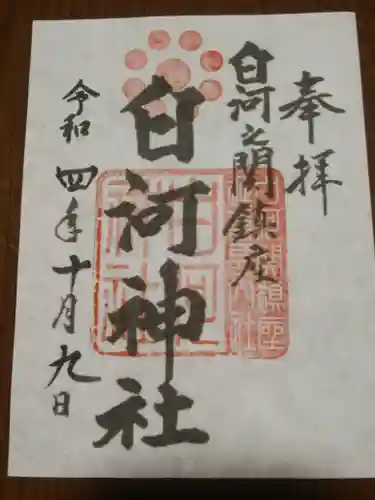 奉拝
白河之関鎮座
白河神社
令和四年十月九日